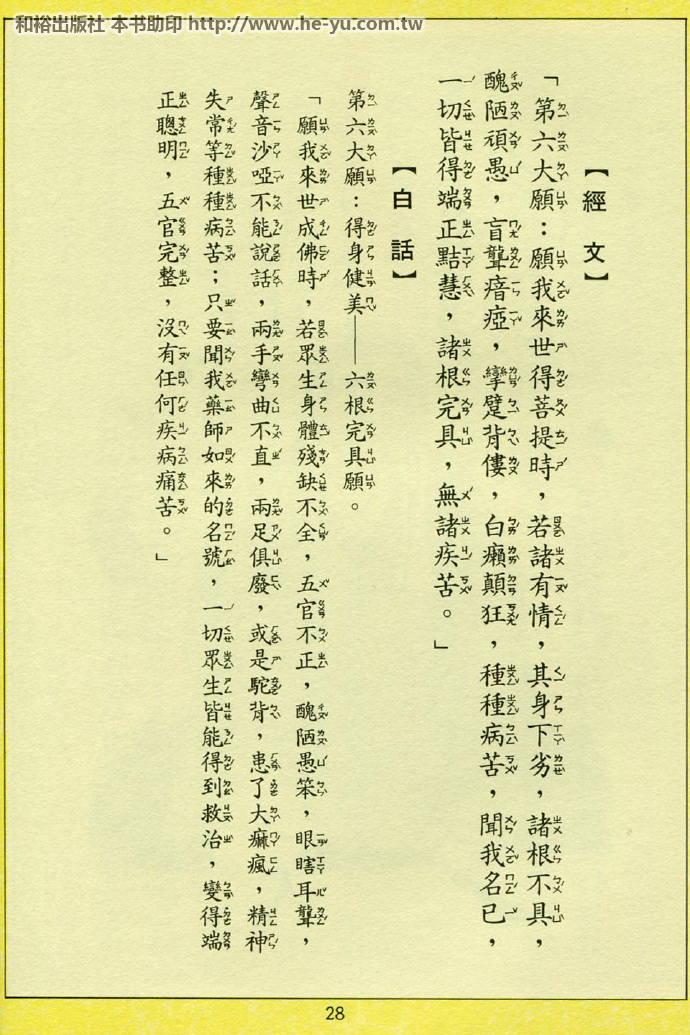 和裕出版社 本书助印 http://www.he-yu.com.tw
【經文】
「第六大願：願我來世得菩提時，若諸有情，其身下劣，諸根不具，
醜陋頑愚，盲聾瘖瘂，攣躄背僂，白癩顛狂，種種病苦，聞我名已，
一切皆得端正黠慧，諸根完具，無諸疾苦。」
【白話】
第六大願：得身健美——六根完具願。
「願我來世成佛時，若眾生身體殘缺不全，五官不正，醜陋愚笨，眼瞎耳聾，
聲音沙啞不能說話，兩手彎曲不直，兩足俱廢，或是駝背，患了大痲瘋，精神
失常等種種病苦；只要聞我藥師如來的名號，一切眾生皆能得到救治，變得端
正聰明，五官完整，沒有任何疾病痛苦。」
28